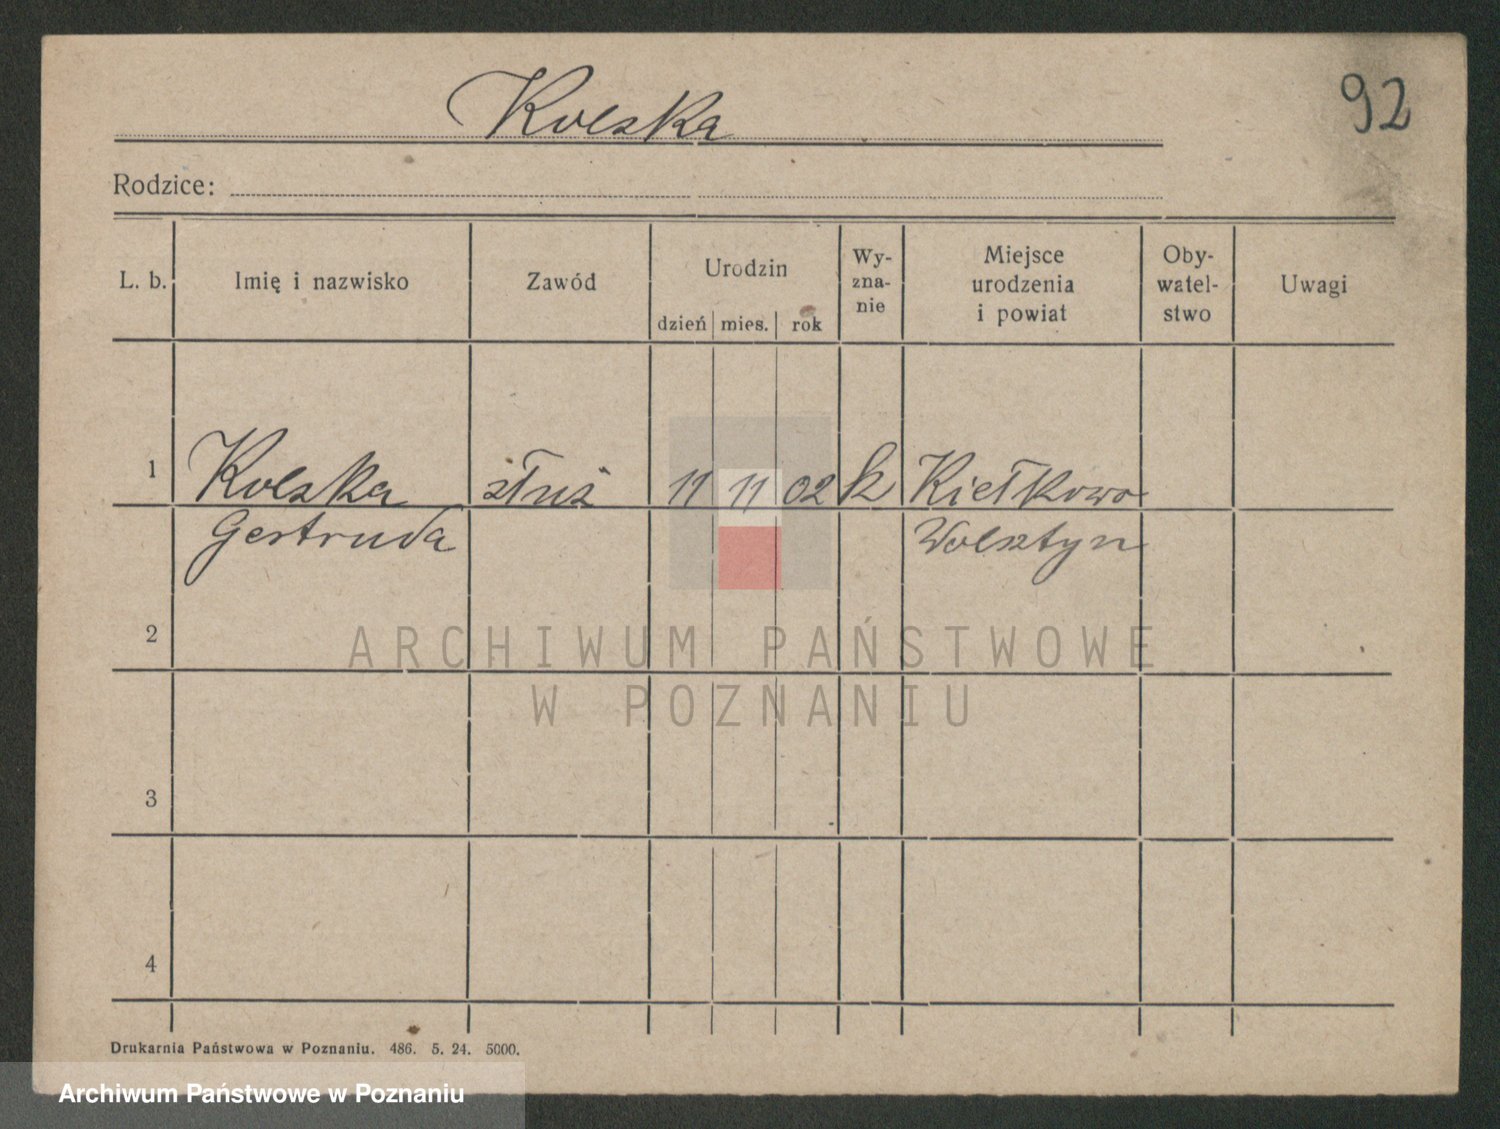 Kolska
92
Rodzice:
L. b. Imię i nazwisko Zawód Urodzin dzień mies. rok Wy-zna-nie Miejsce urodzenia i powiat Oby-watel-stwo Uwagi
1 Kolska służ 11 11 02 k Kiełkowo
Gertruda Wolsztyn
2
ARCHIWUM PAŃSTWOWE
W POZNANIU
3
4
Drukarnia Państwowa w Poznaniu. 486. 5. 24. 5000.
Archiwum Państwowe w Poznaniu